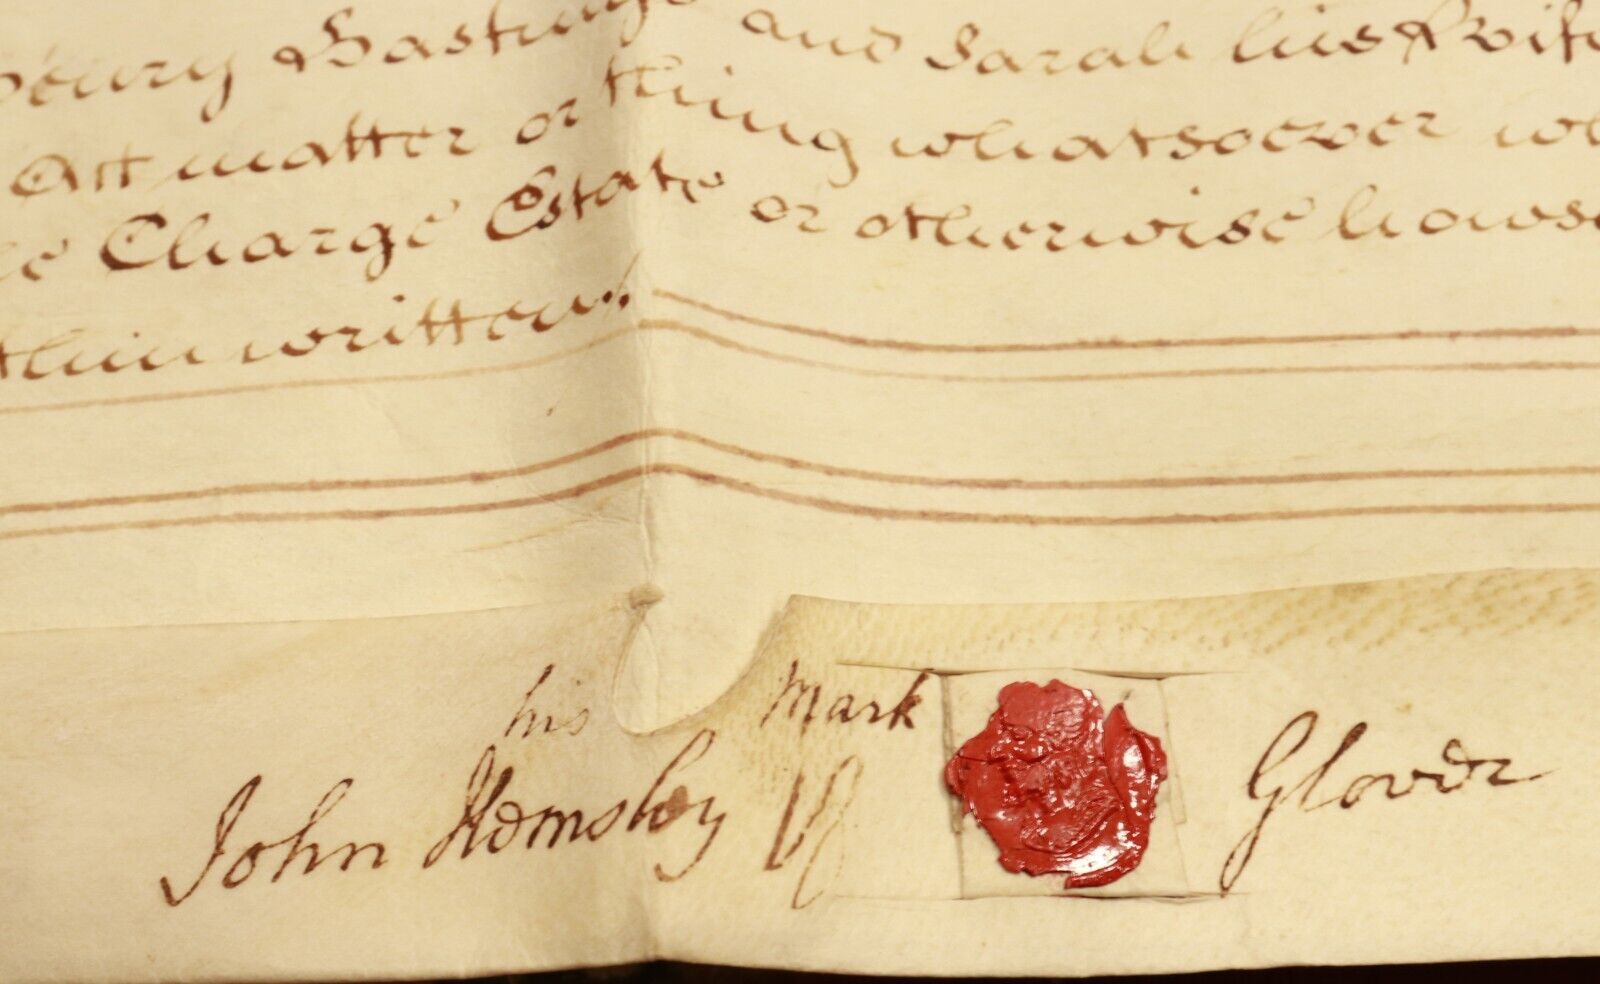 Henry Hastings and Sarah his Wife
Act matter or thing whatsoever wh
Charge Estate or otherwise howso
thin written.
his Mark
John Hemsley Glover